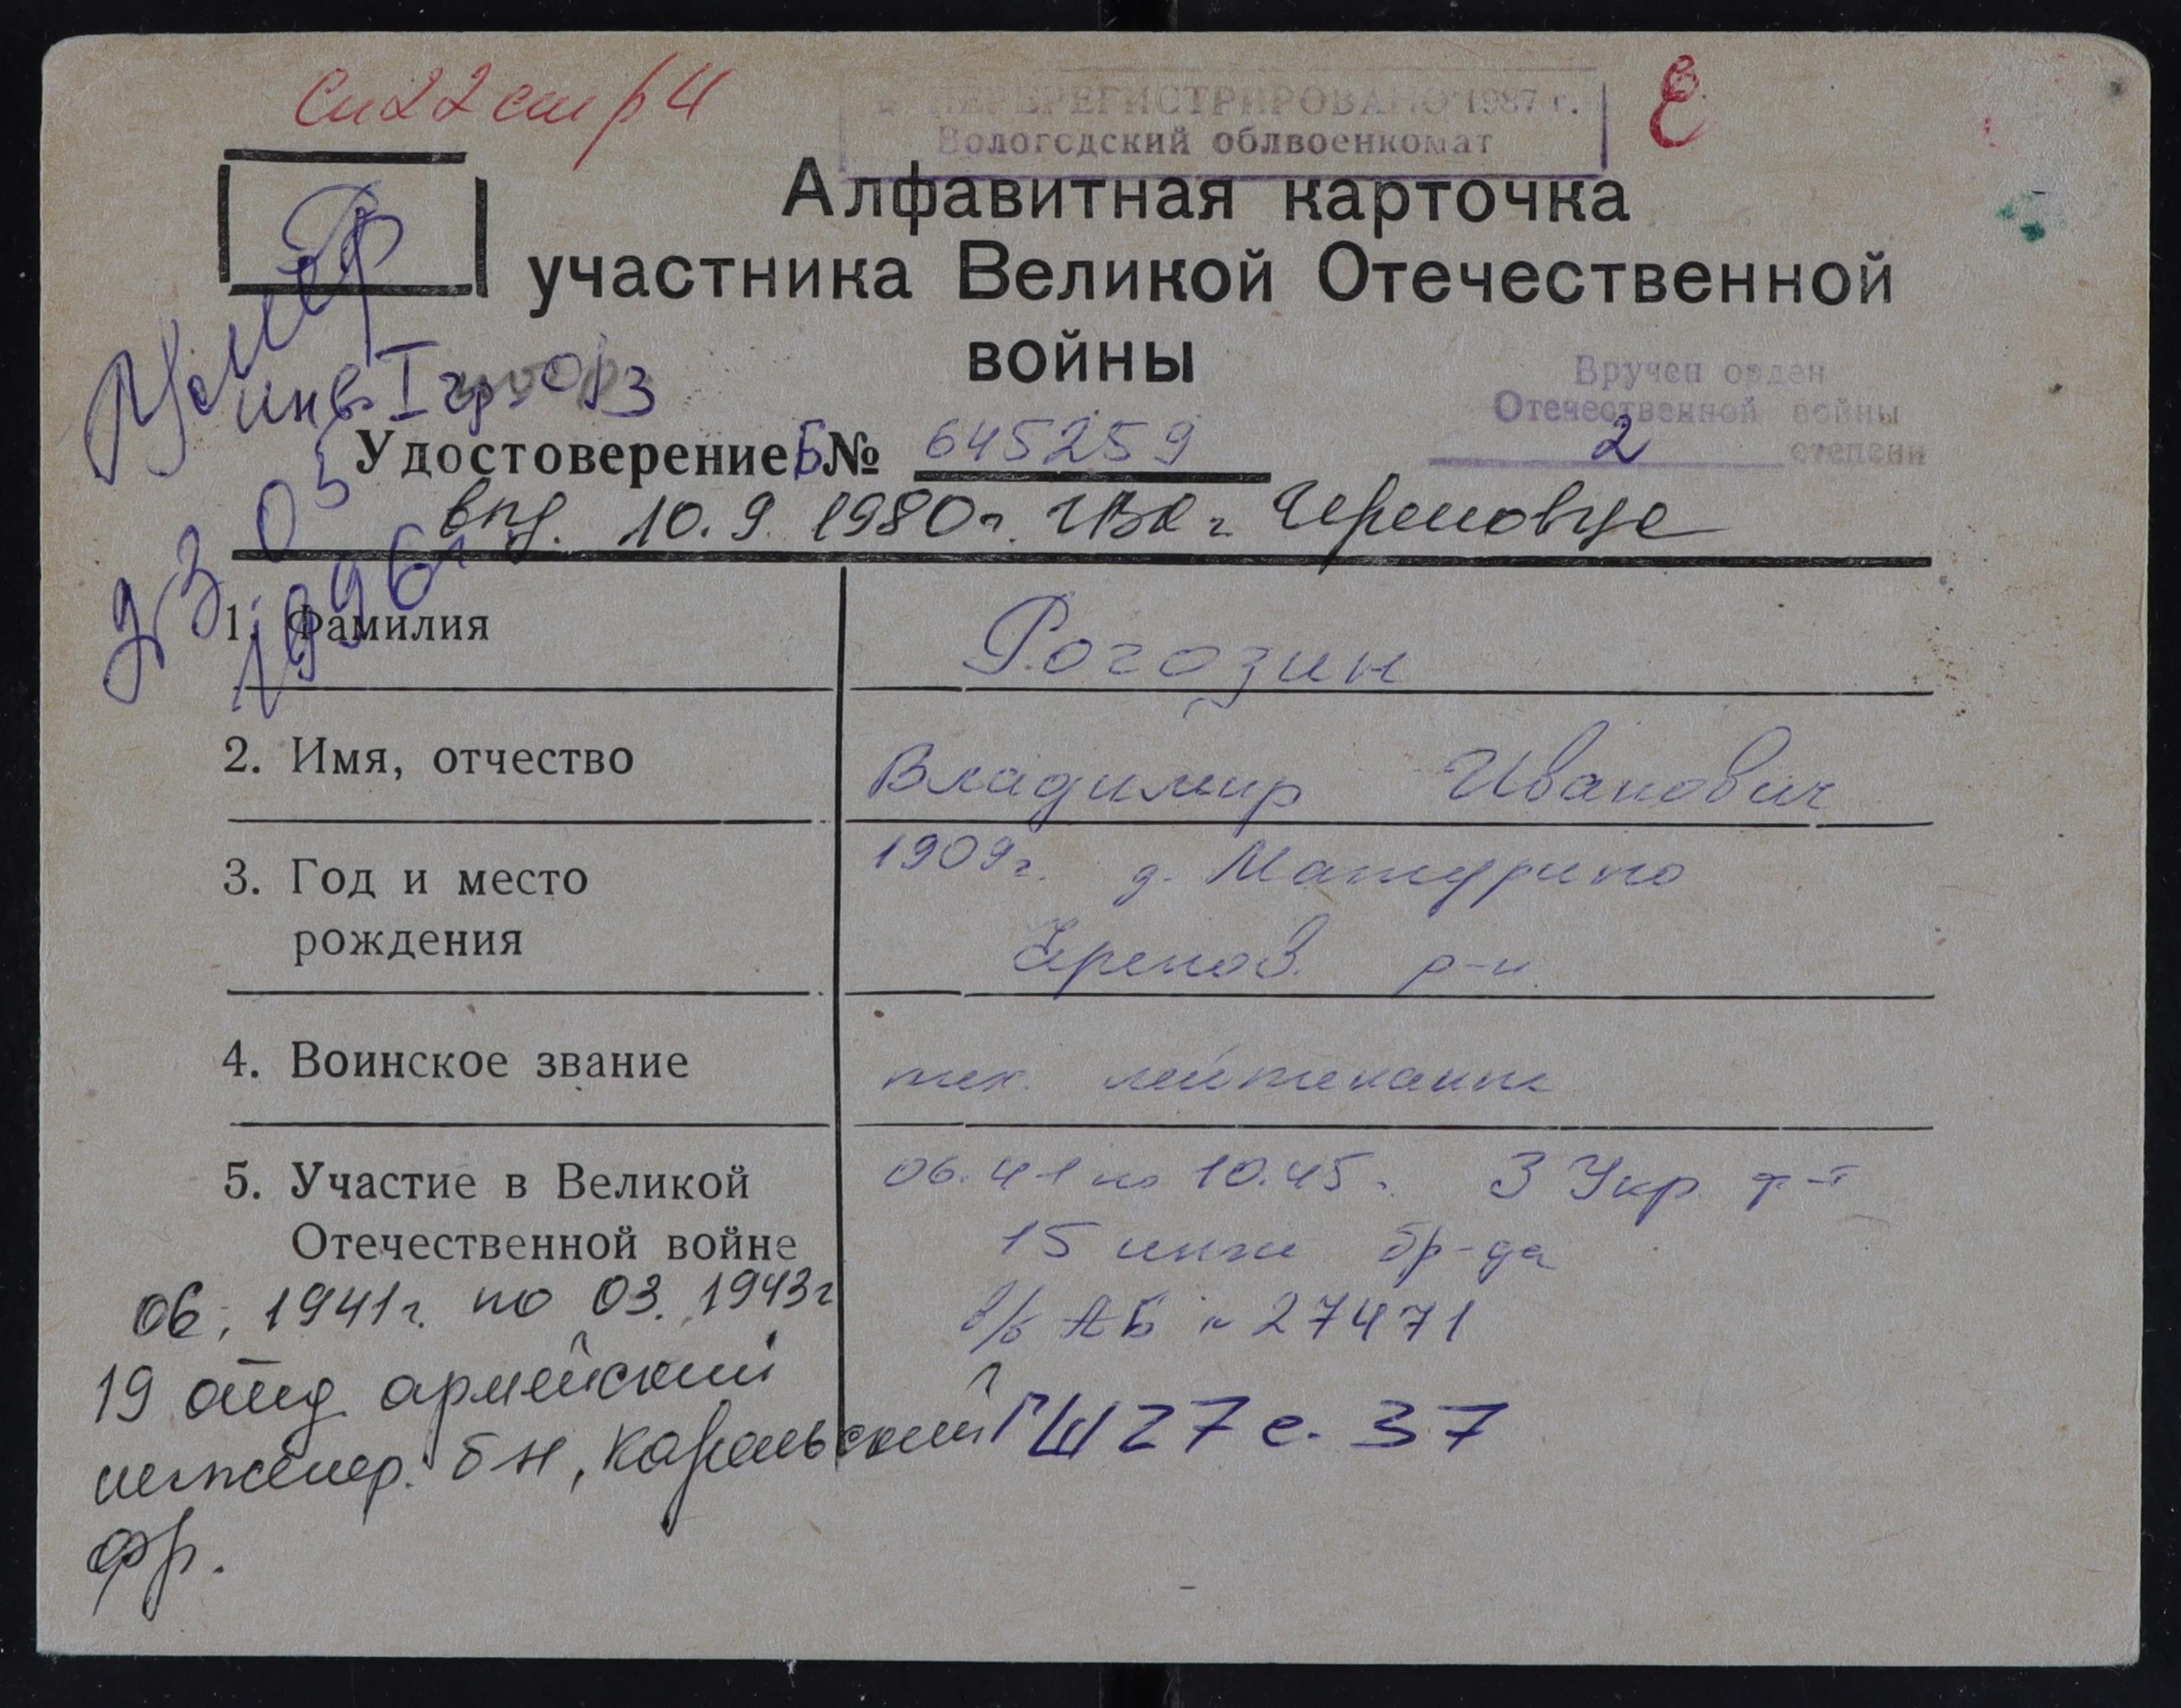 Сп 22 стр 4
ПЕРЕРЕГИСТРИРОВАНО 1987 г.
Вологодский облвоенкомат
Алфавитная карточка
участника Великой Отечественной
войны
Умер
инв. I гр. о/з
Вручен орден
Отечественной войны
2 степени
Удостоверение Б № 645259
выд. 10.9.1980г. ГВК г. Череповца
1996г
1. Фамилия
Рогозин
2. Имя, отчество
Владимир Иванович
3. Год и место
рождения
1909г. д. Матурино
Черепов. р-н
4. Воинское звание
тех. лейтенант
5. Участие в Великой
Отечественной войне
06.41 по 10.45г. 3 Укр. ф-т
15 инж бр-да
в/б АБ № 27471
ГШ 27 с. 37
06. 1941г. по 03. 1943г
19 отд армейский
инженер. бн, Карельский
фр.